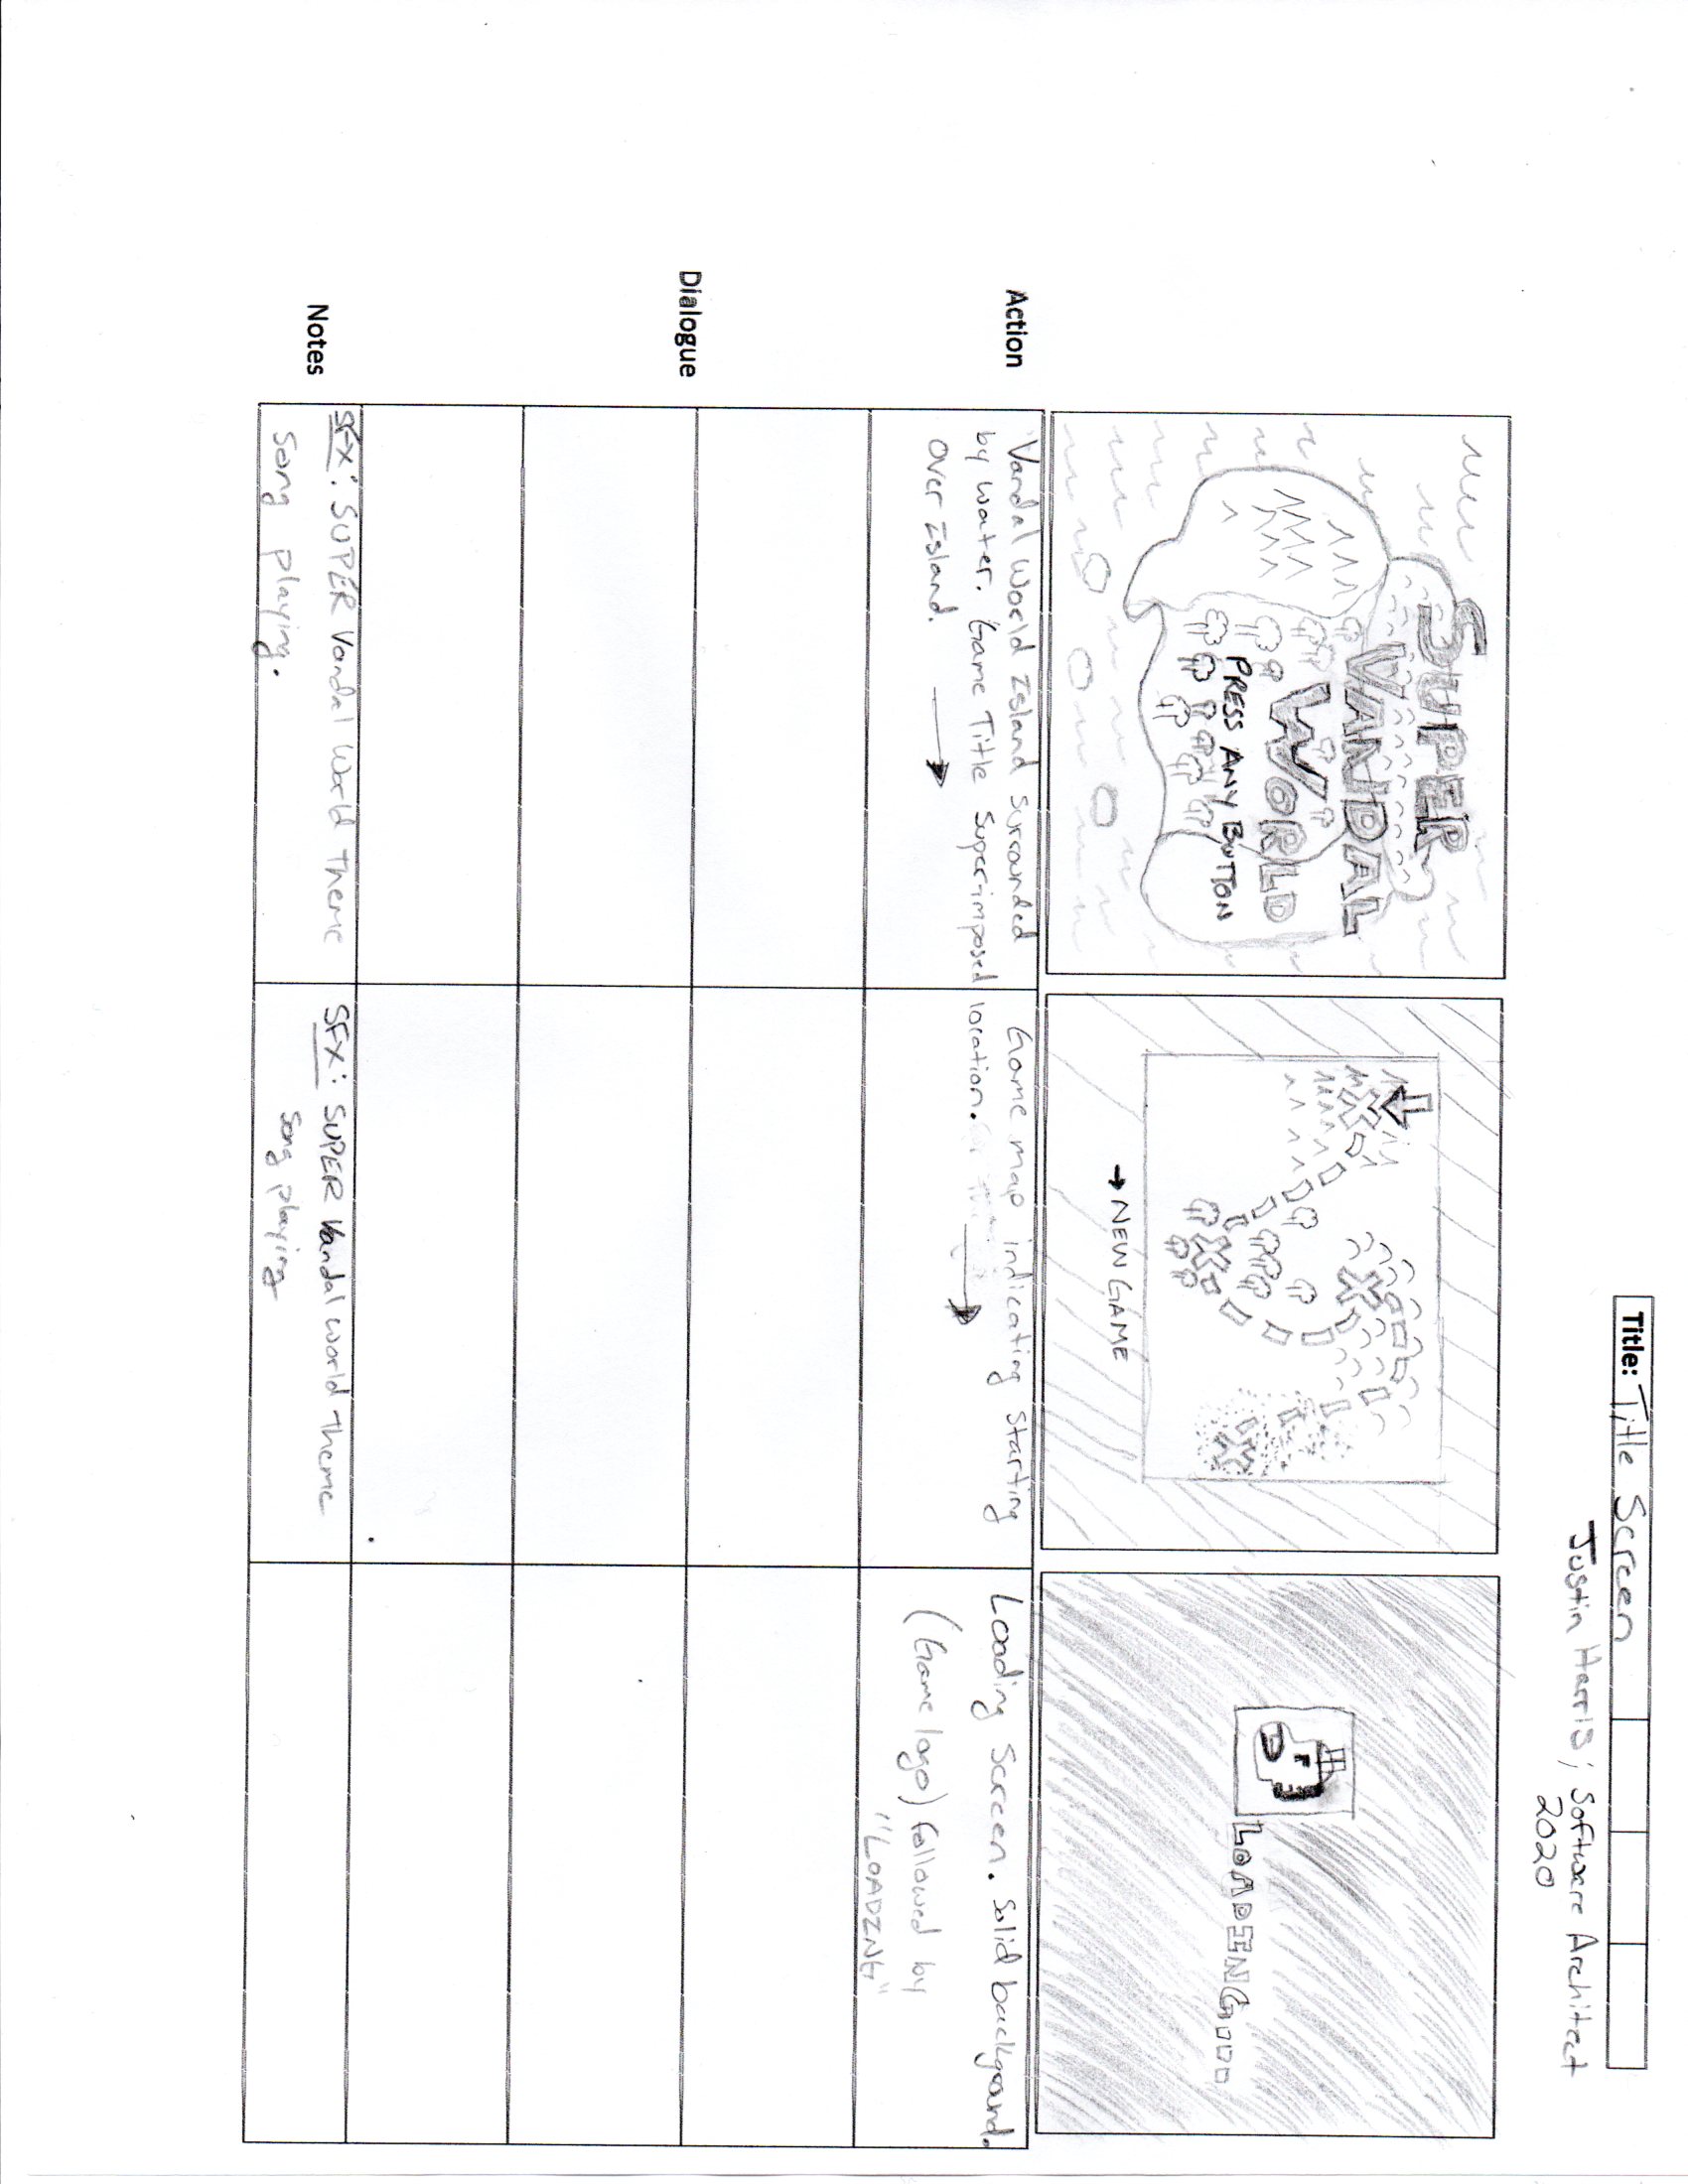 Title: Title Screen
Justin Harris; Software Architect
2020
SUPER
VANDAL
WORLD
PRESS ANY BUTTON
→ NEW GAME
LOADING....
Action
Vandal World Island surrounded
by water. Game Title Super-imposed
Over Island. →
Game map indicating starting
location. →
Loading Screen. Solid background.
(Game logo) followed by
"LOADING"
Dialogue
Notes
SFX: SUPER Vandal World Theme
Song playing.
SFX: SUPER Vandal World Theme
Song playing